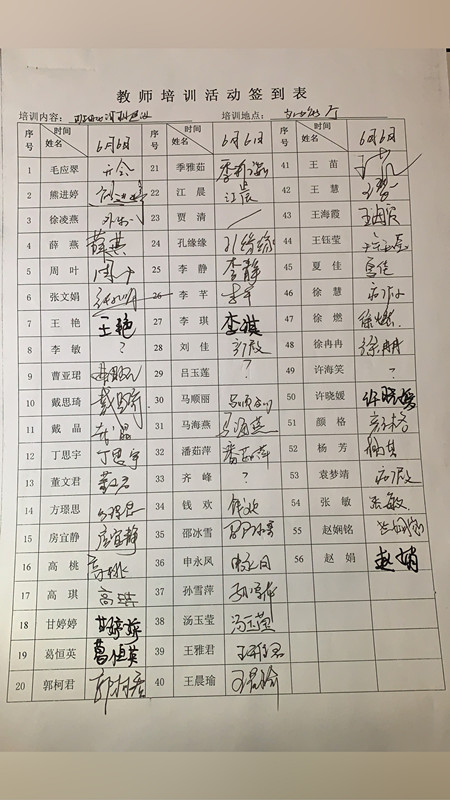 教师培训活动签到表
培训内容： 培训地点：
序号 时间 姓名 6月6日 序号 时间 姓名 6月6日 序号 时间 姓名 6月6日
1 毛应翠 开会 21 季雅茹 季雅茹 41 王苗
2 熊进婷 22 江晨 江晨 42 王慧 王慧
3 徐凌燕 23 贾清 43 王海霞 王海霞
4 薛燕 薛燕 24 孔缘缘 孔缘缘 44 王钰莹
5 周叶 周叶 25 李静 李静 45 夏佳 夏佳
6 张文娟 张文娟 26 李芊 李芊 46 徐慧 病假
7 王艳 王艳 27 李琪 李琪 47 徐燃 徐燃
8 李敏 ? 28 刘佳 48 徐冉冉 徐冉冉
9 曹亚珺 29 吕玉莲 ? 49 许海笑 ?
10 戴思琦 戴思琦 30 马顺丽 马顺丽 50 许晓媛 许晓媛
11 戴晶 戴晶 31 马海燕 马海燕 51 颜格 颜格
12 丁思宇 丁思宇 32 潘茹萍 潘茹萍 52 杨芳
13 董文君 33 齐峰 ? 53 袁梦靖 病假
14 方璟思 34 钱欢 钱欢 54 张敏 张敏
15 房宜静 房宜静 35 邵冰雪 邵冰雪 55 赵娴铭
16 高桃 高桃 36 申永风 56 赵娟 赵娟
17 高琪 高琪 37 孙雪萍 孙雪萍
18 甘婷婷 甘婷婷 38 汤玉莹 汤玉莹
19 葛恒英 葛恒英 39 王雅君 王雅君
20 郭柯君 郭柯君 40 王晨瑜 王晨瑜